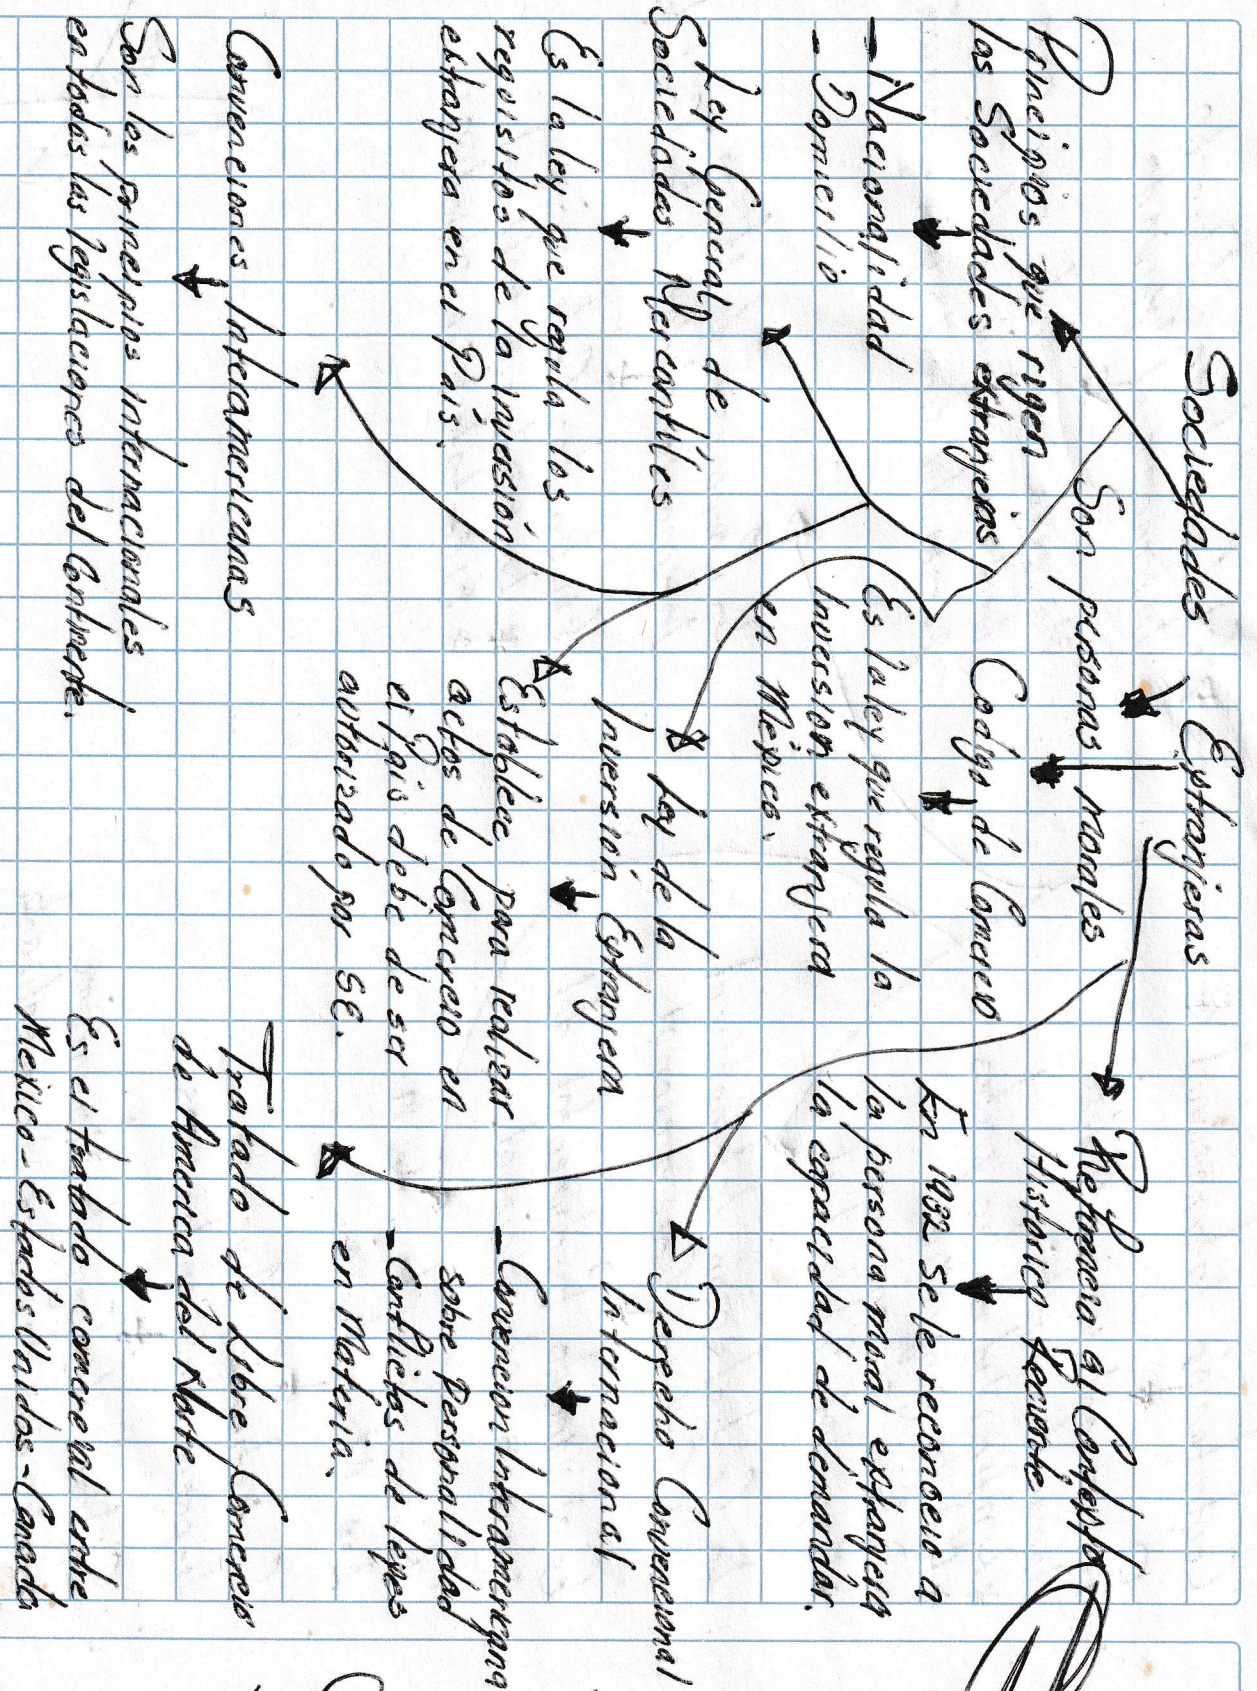 Sociedades Extranjeras
Son personas morales
Principios que rigen
las Sociedades extranjeras
- Nacionalidad
- Domicilio
Ley General de
Sociedades Mercantiles
Es la ley que regula los
requisitos de la inversión
extranjera en el País.
Convenciones Interamericanas
Son los principios internacionales
en todas las legislaciones del Continente.
Codigo de Comercio
Es la ley que regula la
Inversion extranjera
en México.
Ley de la
Inversión Extranjera
Establece para realizar
actos de Comercio en
el País debe de ser
autorizado por SE.
Referencia al Contexto
Histórico Reciente
En 1932 se le reconocio a
la persona moral extrajera
la capacidad de demandar.
Derecho Convencional
Internacional
- Convencion Interamericana
sobre Personalidad
- Conflictos de leyes
en Materia.
Tratado de Libre Comercio
de America del Norte
Es el tratado comercial entre
Mexico-Estados Unidos-Canada